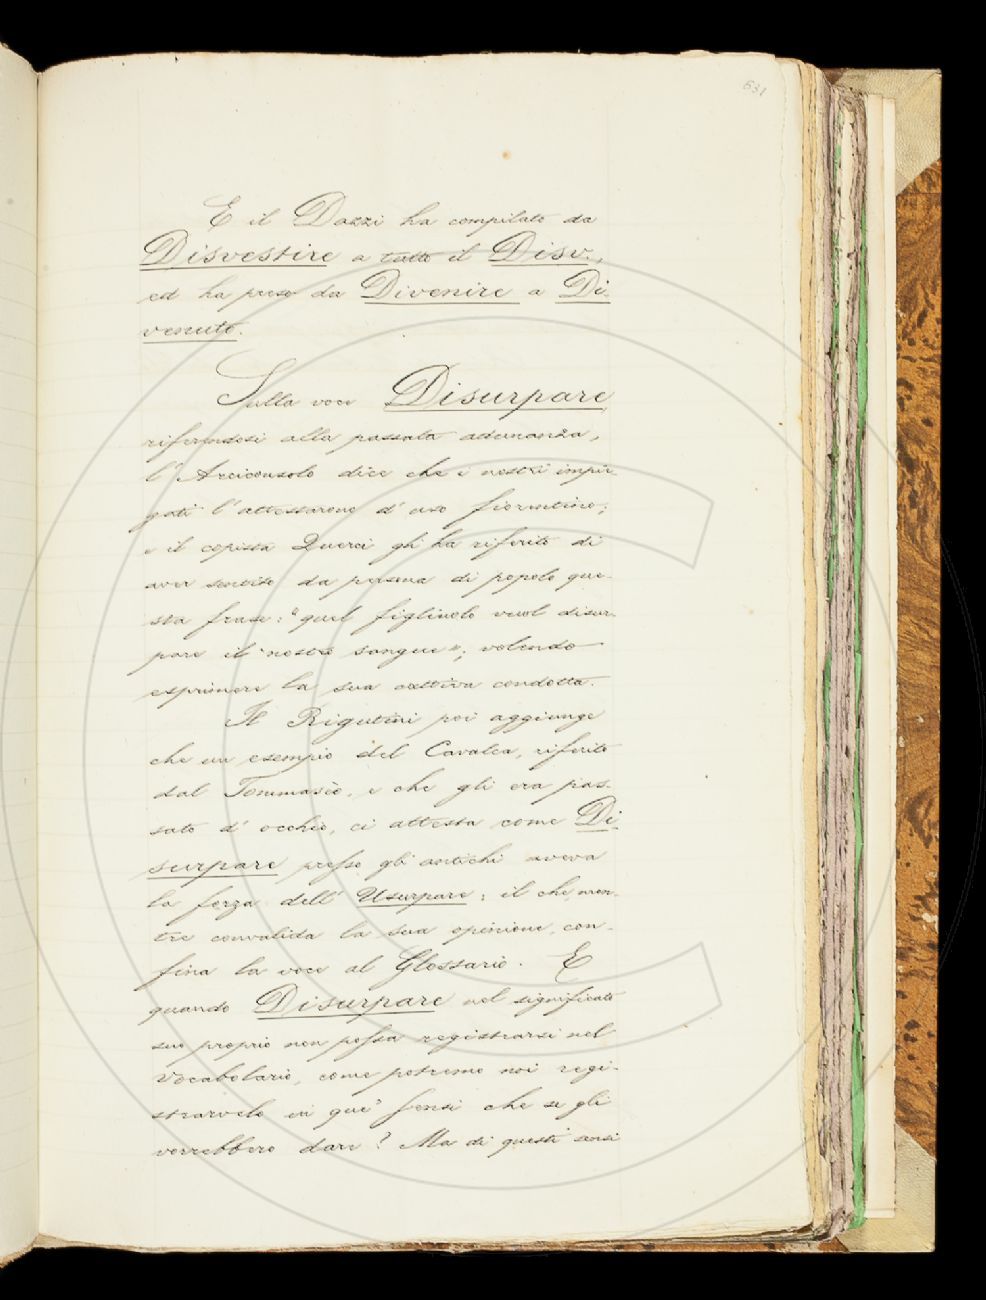 631
E il Dazzi ha compilato da
Disvestire a tutto il Disv.,
ed ha preso da Divenire a Di-
venuto.
Sulla voce Disurpare
riferendosi alla passata adunanza,
l'Arciconsolo dice che i nostri impie
gati l'attestarono d'uso fiorentino;
e il copista Querci gli ha riferito di
aver sentito da persona di popolo que-
sta frase: "quel figliuolo vuol disur-
pare il nostro sangue"; volendo
esprimere la sua cattiva condotta.
Il Rigutini poi aggiunge
che un esempio del Cavalca, riferito
dal Tommasèo, e che gli era pas-
sato d'occhio, ci attesta come Di-
surpare presso gli antichi aveva
la forza dell'Usurpare; il che, men-
tre convalida la sua opinione, con-
fina la voce al Glossario. E
quando Disurpare nel significato
suo proprio non possa registrarsi nel
Vocabolario, come potremo noi regi-
strarvelo in que' sensi che se gli
vorrebbero dare? Ma di questi sensi